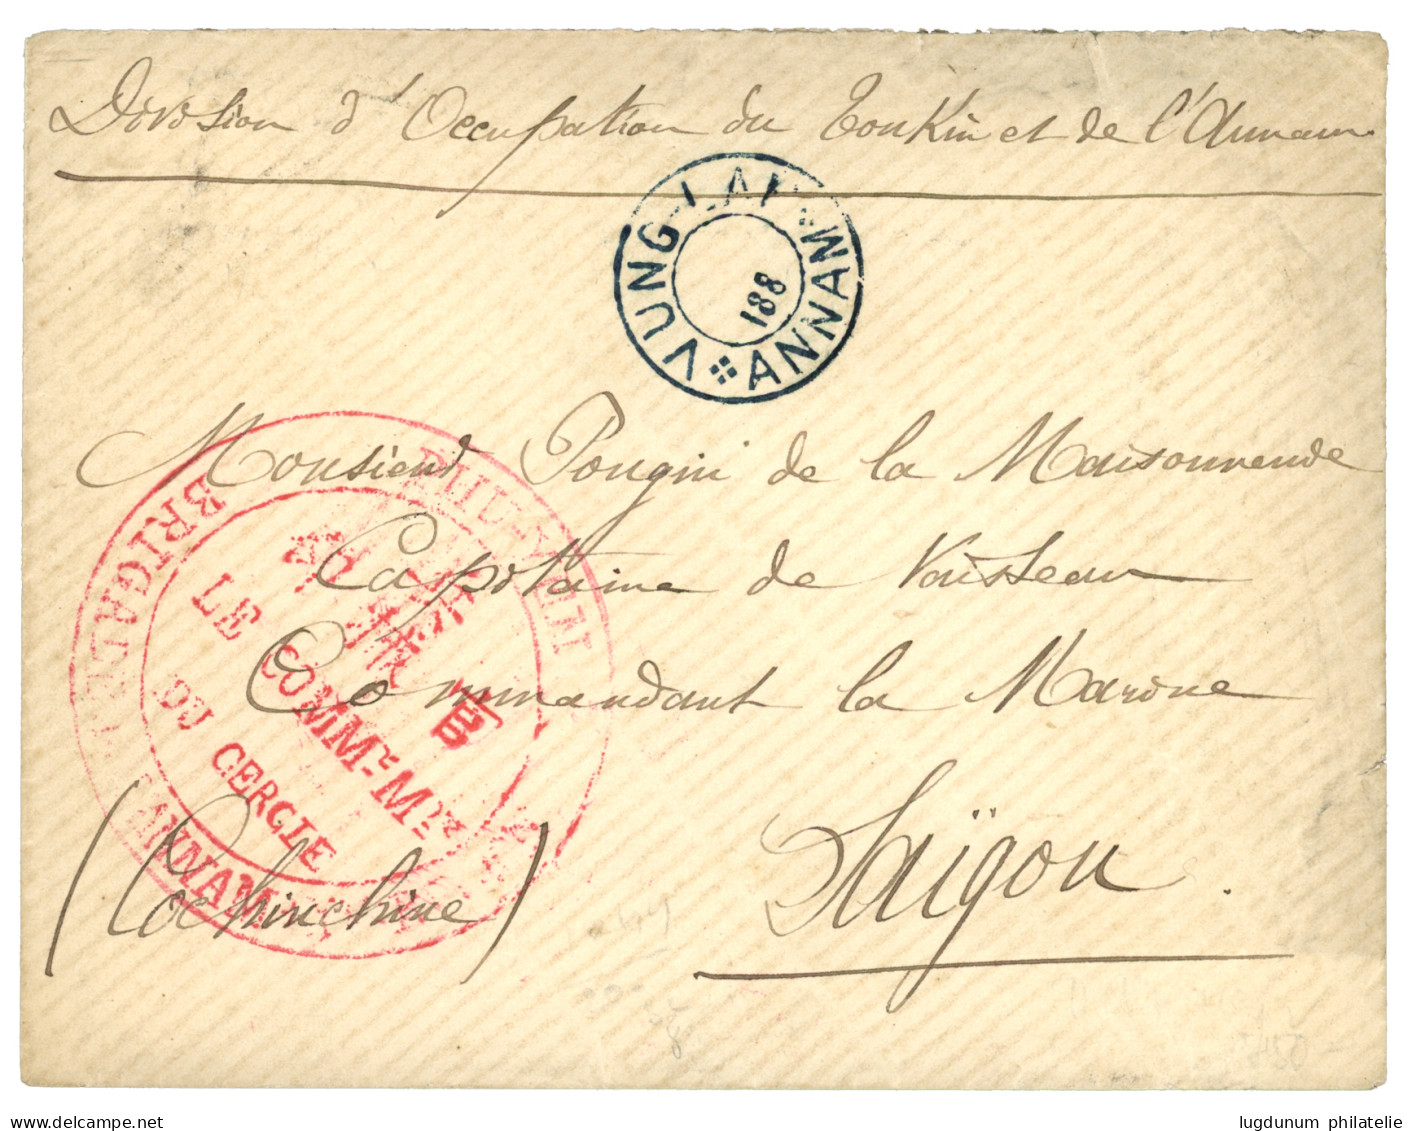 Division d'Occupation du Tonkin et de l'Annam
VUNG-LAM
ANNAM
188
Monsieur Pougin de la Maisonneuve
Capitaine de Vaisseau
Commandant la Marine
Saïgon.
(Cochinchine)
BRIGADE
ANNAM
LE COMMT MRE
DU CERCLE
lugdunum philatelie